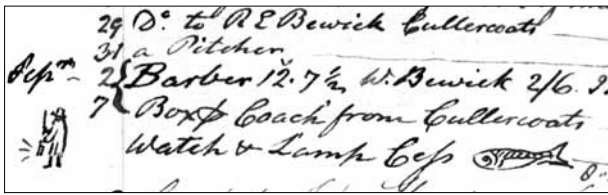 29 Do. to R E Bewick Cullercoats
31 a Pitcher
Sepr. 2 Barber 12.7½ W. Bewick 2/6.
7 Box & Coach from Cullercoats
Watch & Lamp Cess